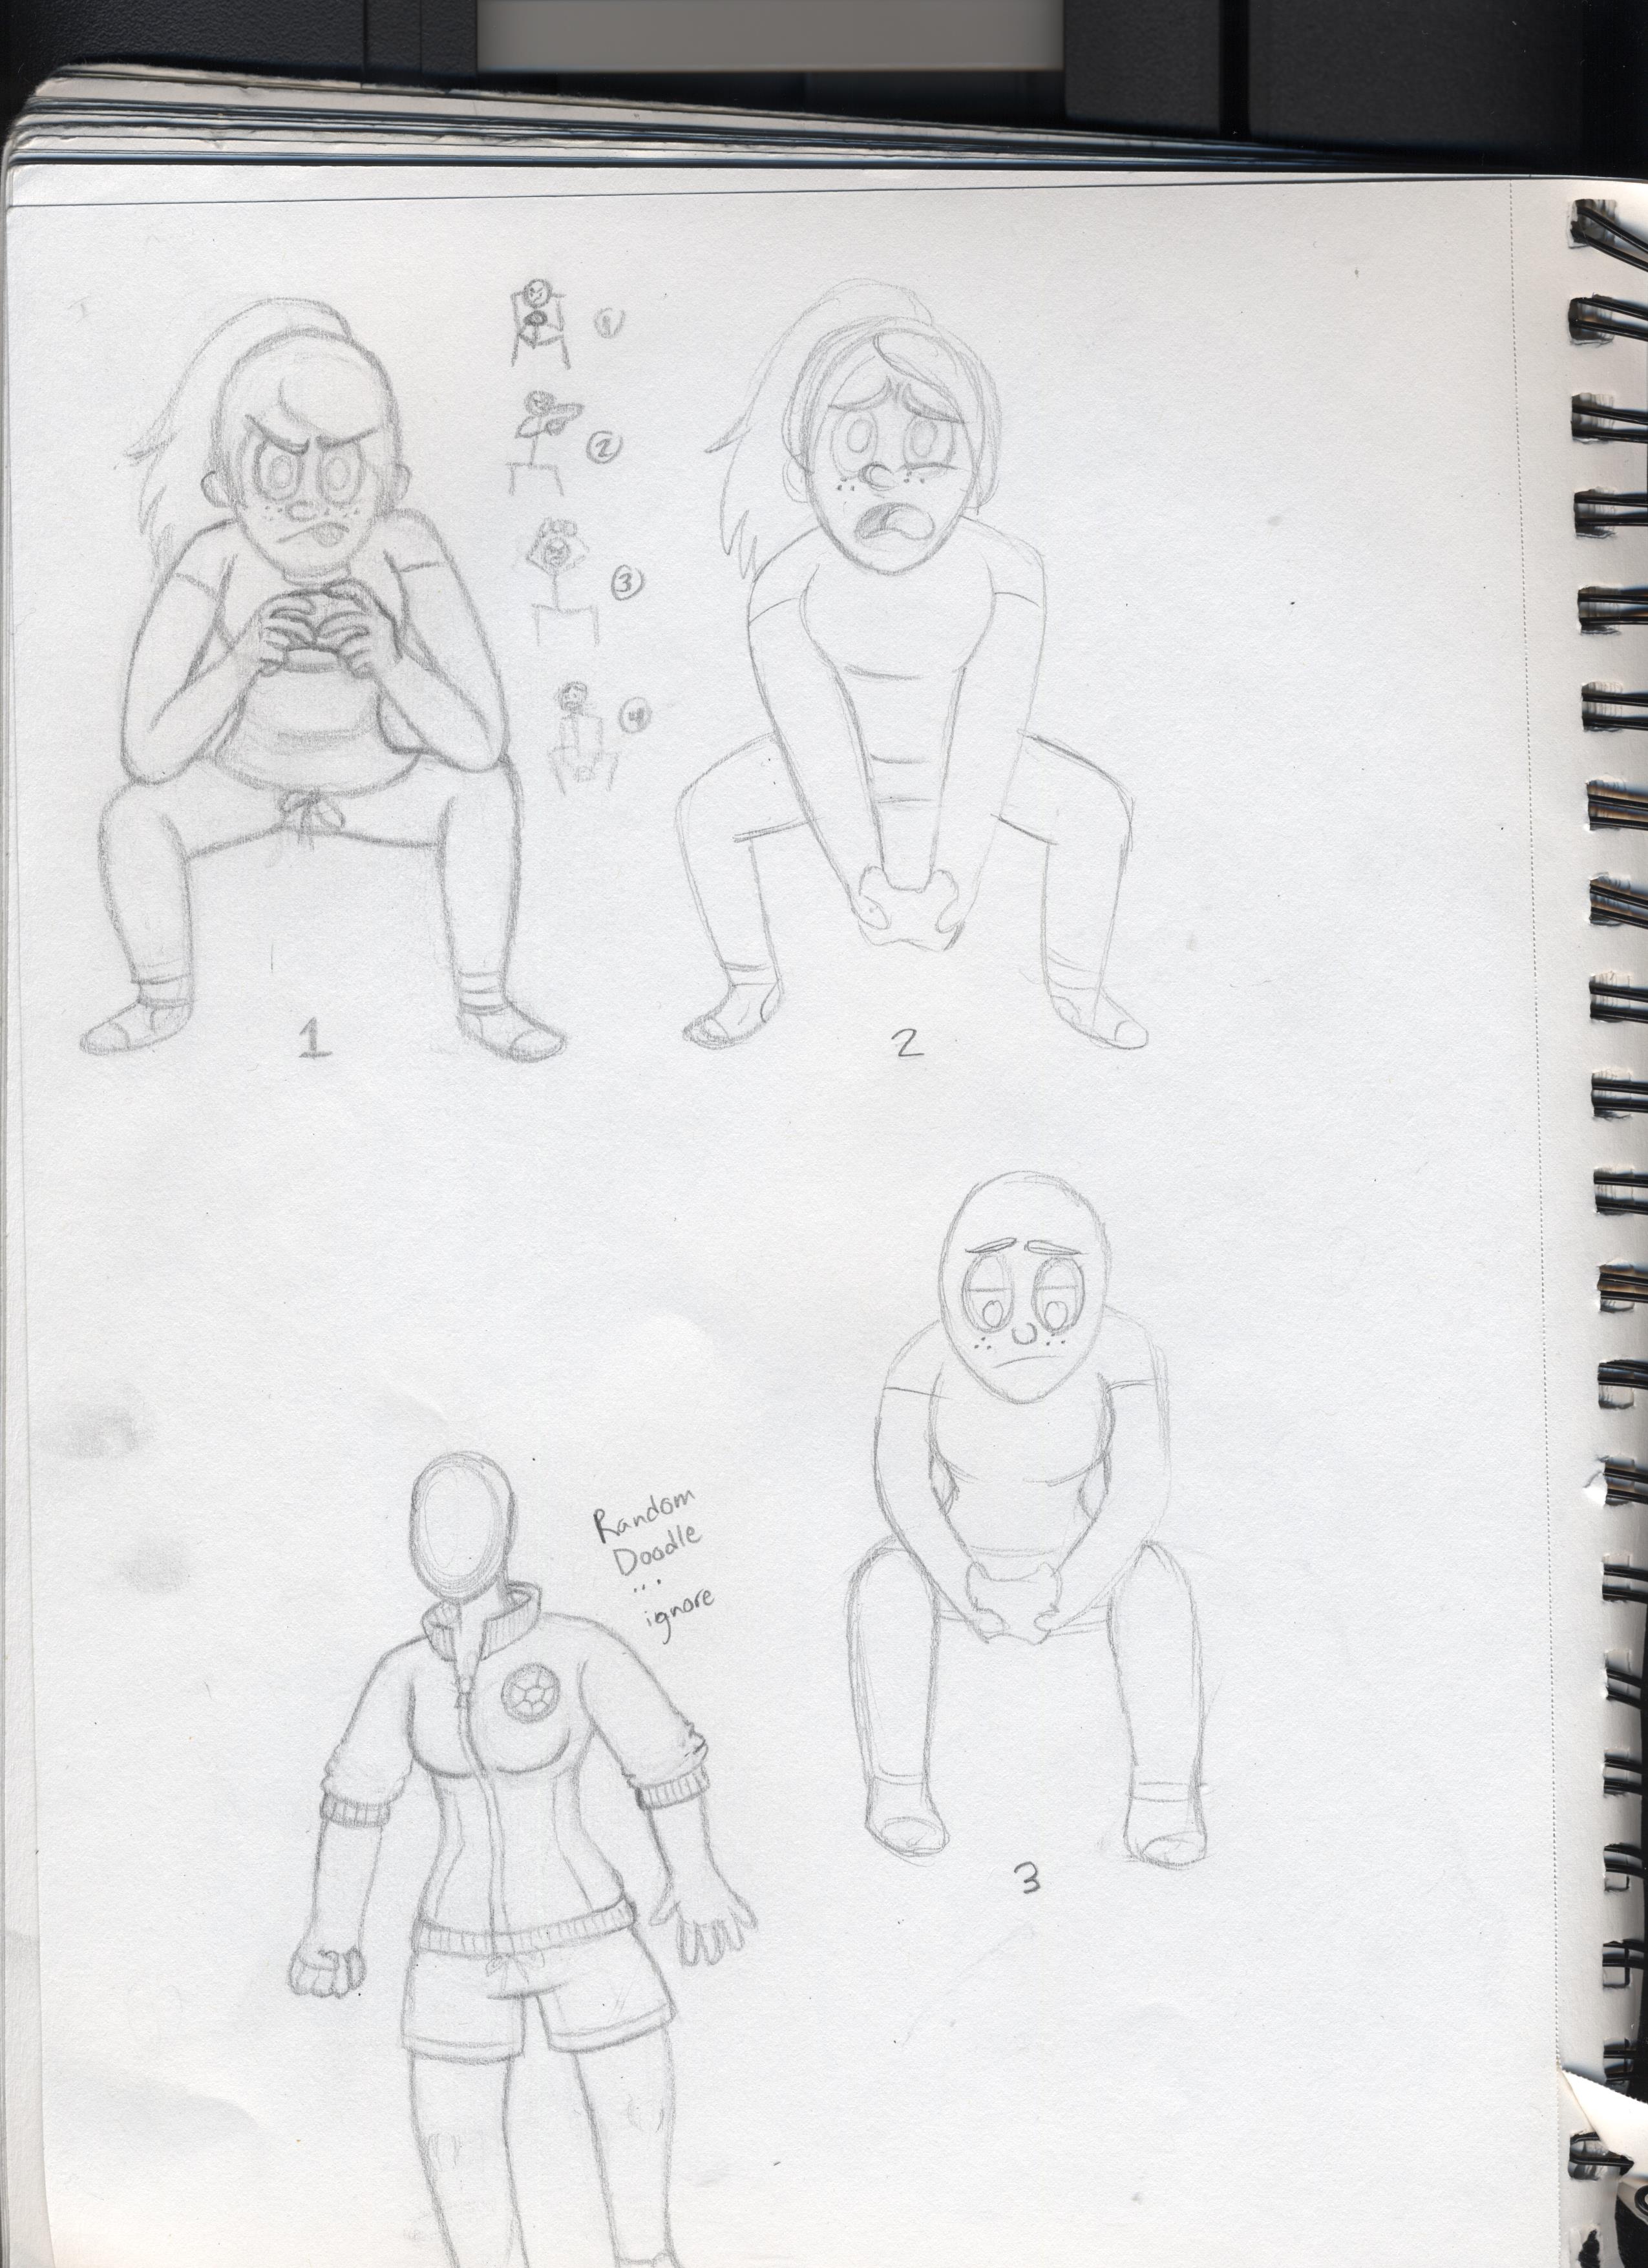 ①
②
③
④
1
2
Random
Doodle
...
ignore
3